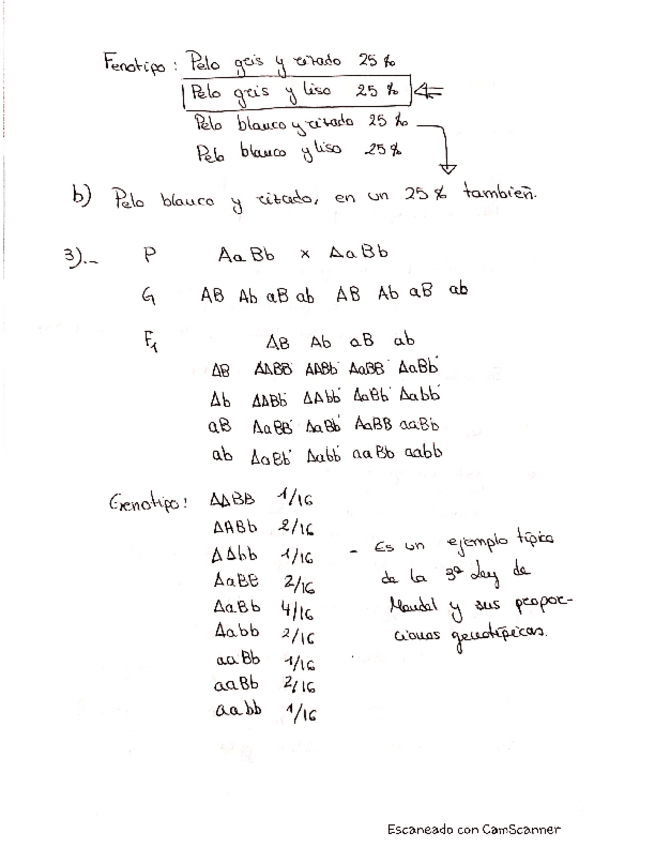 Fenotipo: Pelo gris y rizado 25%
Pelo gris y liso 25%
Pelo blanco y rizado 25%
Pelo blanco y liso 25%
b) Pelo blanco y rizado, en un 25% también.
3).- P AaBb x AaBb
G AB Ab aB ab AB Ab aB ab
F1 AB Ab aB ab
AB AABB AABb AaBB AaBb
Ab AABb AAbb AaBb Aabb
aB AaBB AaBb AaBB aaBb
ab AaBb Aabb aaBb aabb
Genotipo: AABB 1/16
AABb 2/16
AAbb 1/16
AaBB 2/16
AaBb 4/16
Aabb 2/16
aaBb 1/16
aaBb 2/16
aabb 1/16
- Es un ejemplo típico
de la 3ª Ley de
Mendel y sus propor-
ciones genotípicas.
Escaneado con CamScanner